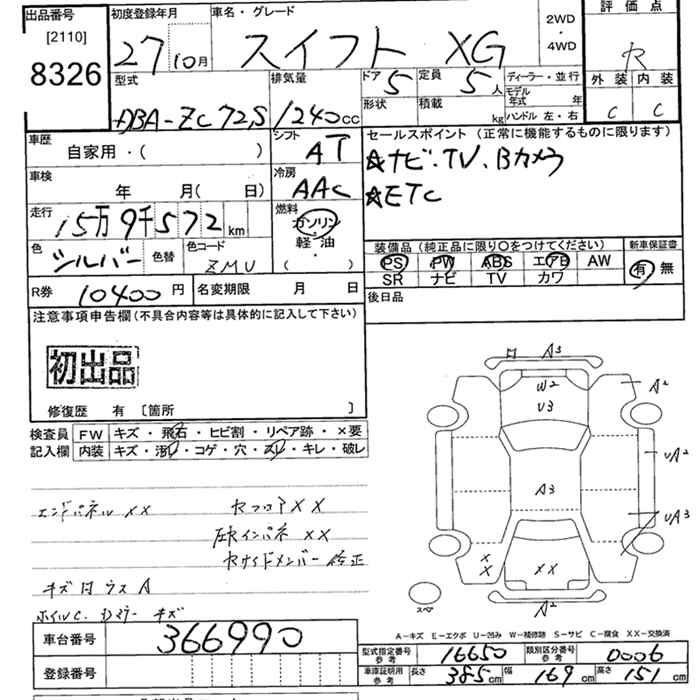 出品番号
[2110]
8326
初度登録年月
27 10月
車名・グレード
スイフト XG
2WD
・
4WD
評価点
R
外装 内装
C C
型式
DBA-ZC72S
排気量
1240cc
ドア 5
定員 5人
形状
積載 kg
ディーラー・並行
モデル年式 年
ハンドル 左・右
車歴
自家用・( )
シフト
AT
車検
年 月( 日)
冷房
AAC
走行
15万9千572km
燃料
ガソリン
軽・油
( ・ )
色
シルバー
色替
色コード
ZMU
セールスポイント (正常に機能するものに限ります)
☆ナビ・TV、Bカメラ
☆ETC
装備品 (純正品に限り〇をつけてください)
PS PW ABS エアB AW
SR ナビ TV カワ
新車保証書
有 無
R券 10400円
名変期限 月 日
後日品
注意事項申告欄(不具合内容等は具体的に記入して下さい)
初出品
修復歴 有 〔箇所 〕
検査員記入欄
FW キズ・飛石・ヒビ割・リペア跡・×要
内装 キズ・汚レ・コゲ・穴・スレ・キレ・破レ
エンドパネル XX
セフロア XX
左右インパネ XX
セサイドメンバー 修正
A3
W2
U3
A2
UA2
A3
UA3
X
X
XX
A2
スペア
A-キズ E-エクボ U-凹み W-補修跡 S-サビ C-腐食 XX-交換済
車台番号
366990
登録番号
型式指定番号 参考
16650
類別区分番号 参考
0006
車庫証明用 参考
長さ 385cm 幅 169cm 高さ 151cm